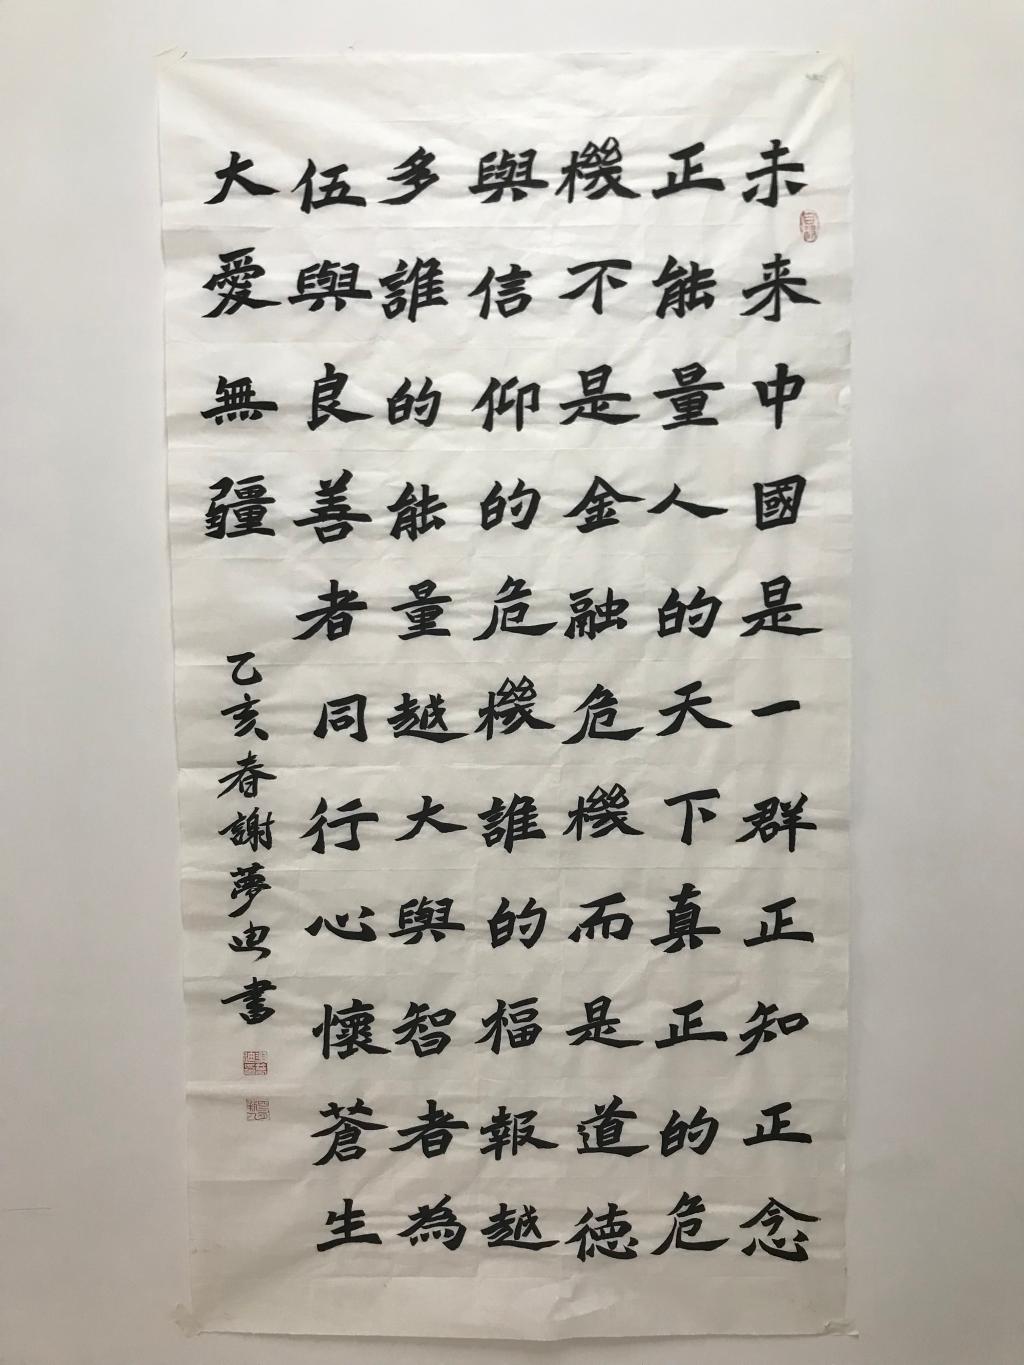 未来中國是一群正知正念
正能量人的天下真正的危
機不是金融危機而是道德
與信仰的危機誰的福報越
多誰的能量越大與智者為
伍與良善者同行心懷蒼生
大愛無疆
乙亥春謝夢迪書